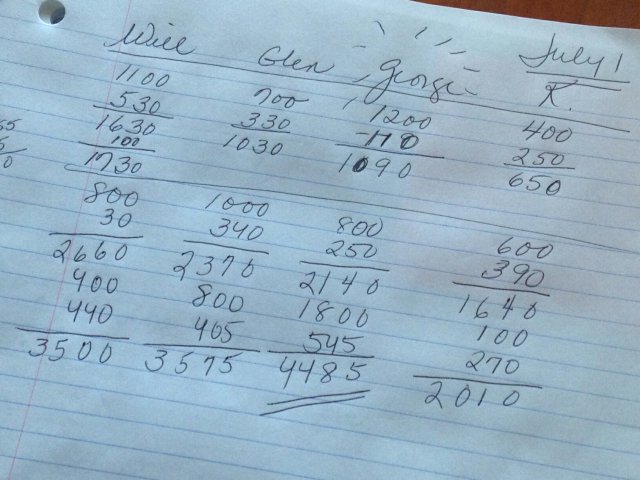 July 1
Will Glen George K.
1100 700 1200 400
530 330 -110 250
1630 1030 1090 650
100
1730
800 1000 800 600
30 340 250 390
2660 2370 2140 1640
400 800 1800 100
440 405 545 270
3500 3575 4485 2010